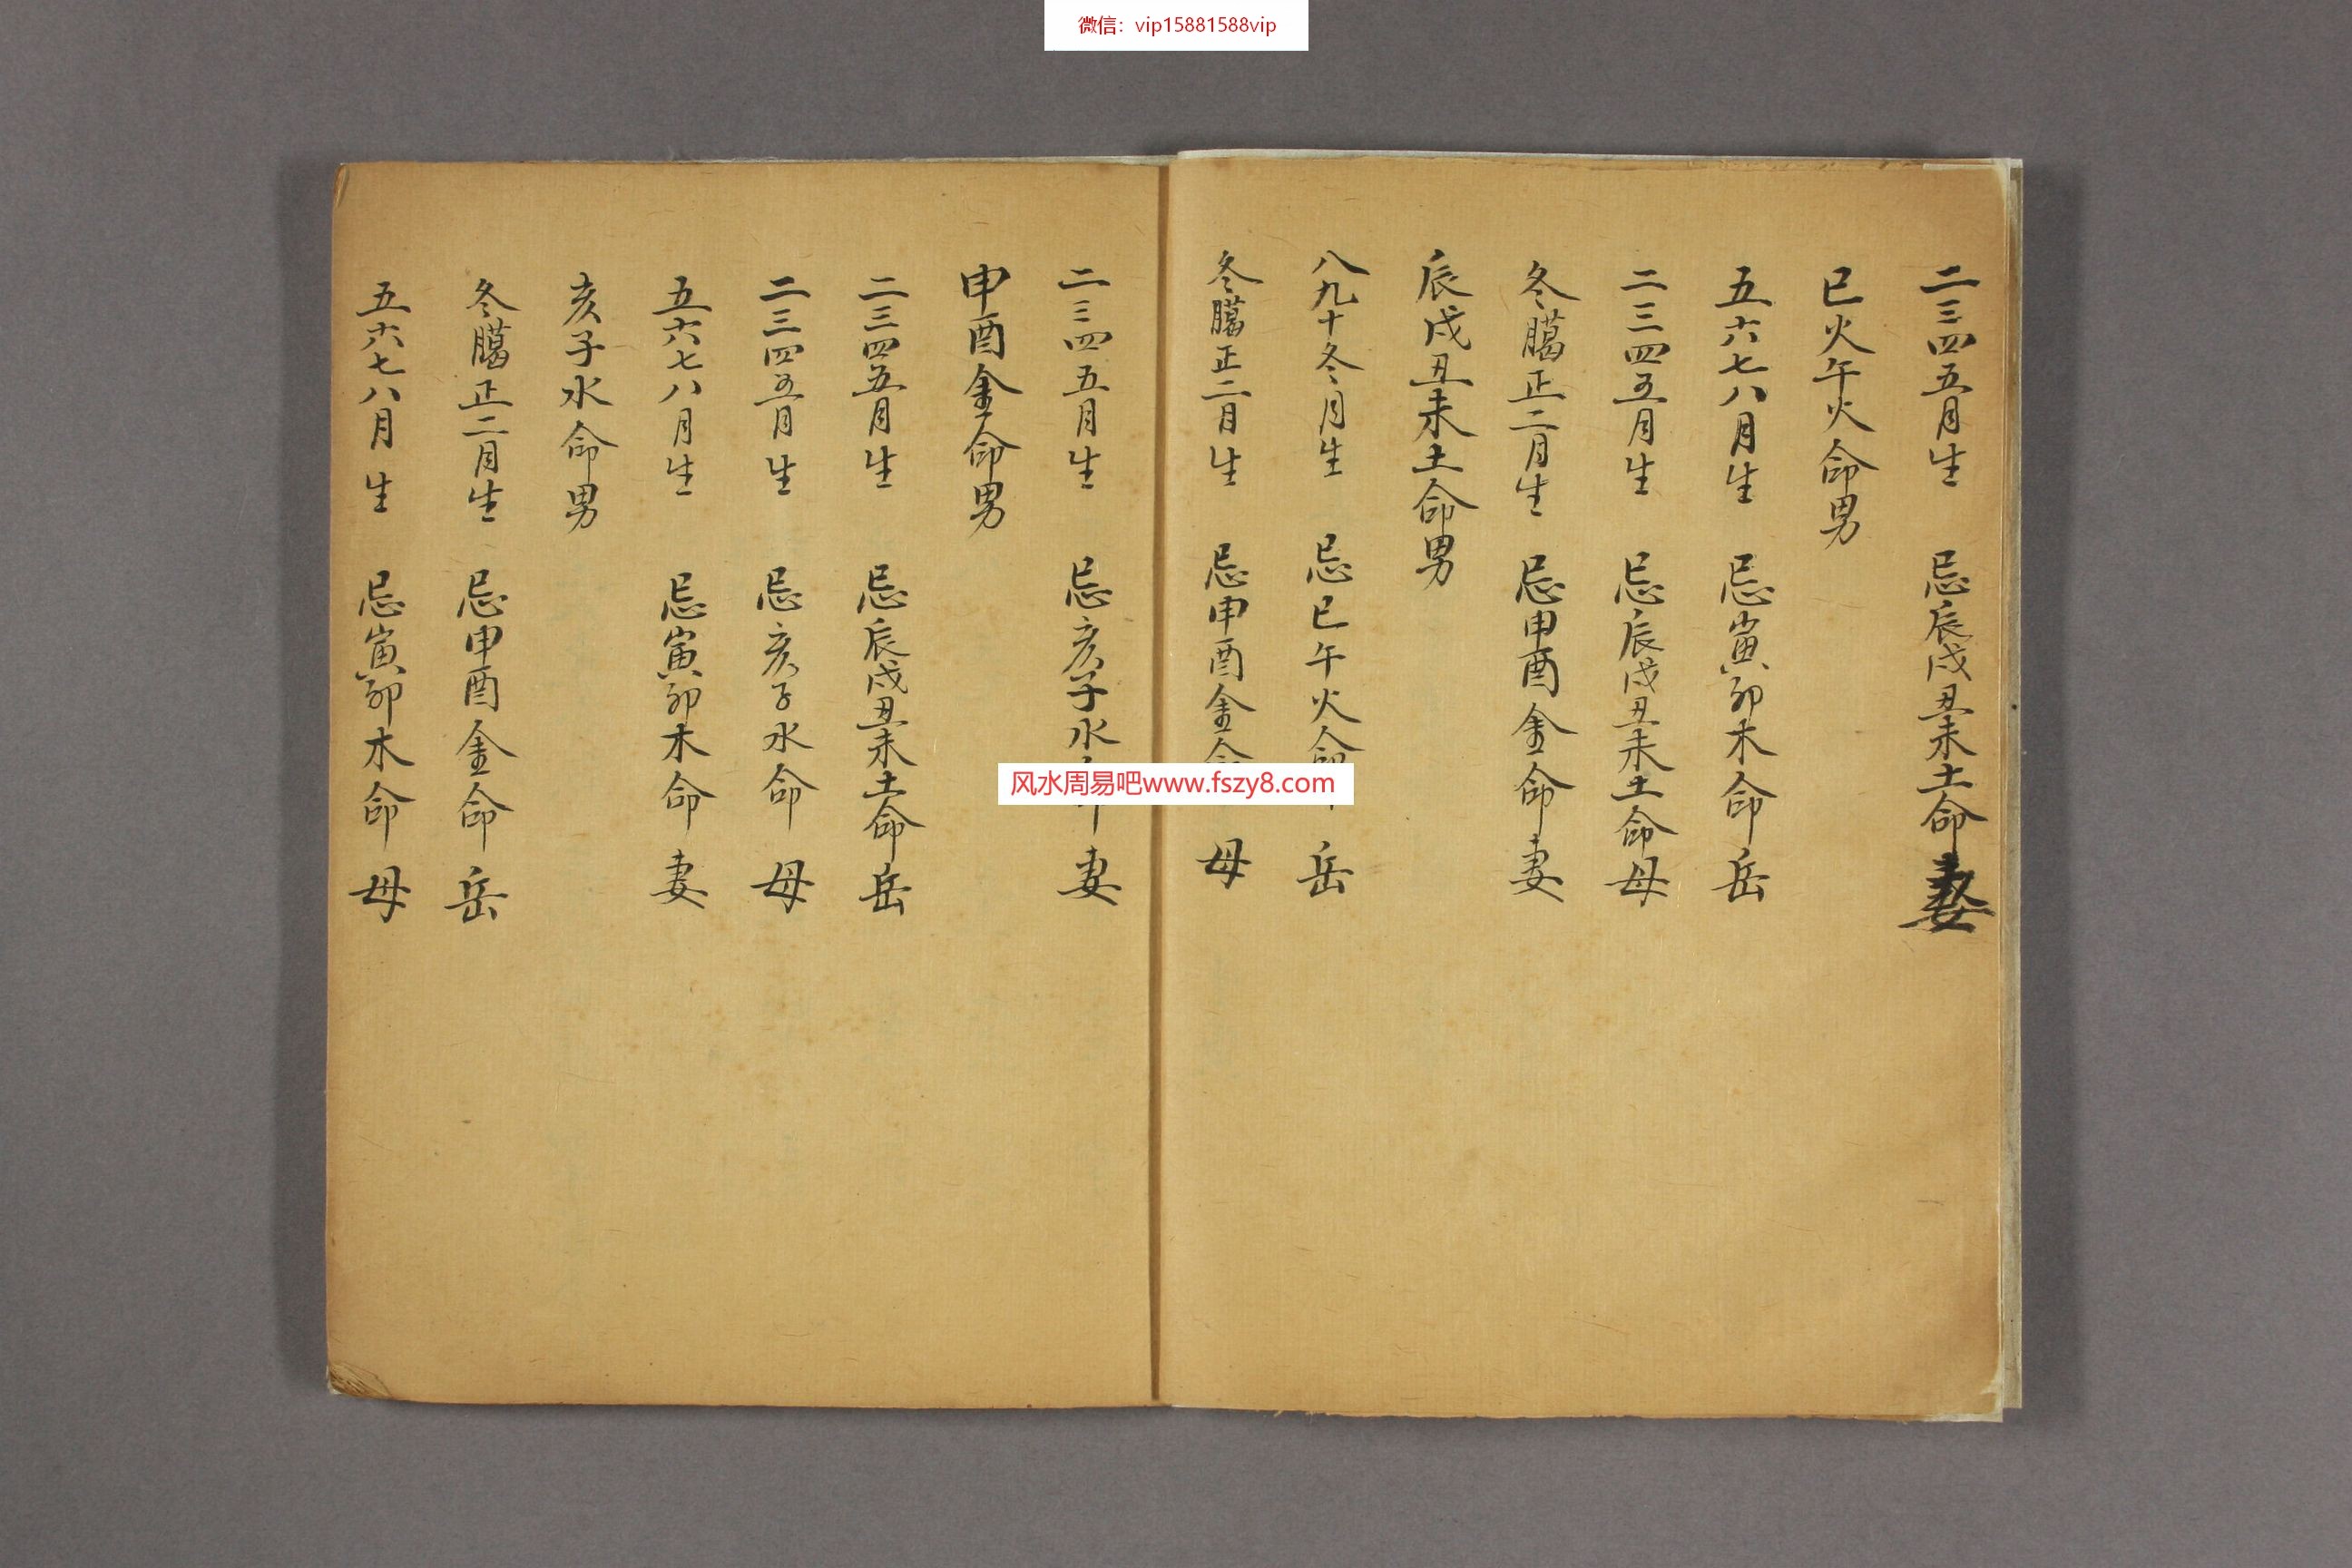 微信：vip15881588vip
二三四五月生 忌辰戌丑未土命妻
巳火午火命男
五六七八月生 忌寅卯木命岳
二三四五月生 忌辰戌丑未土命母
冬臈正二月生 忌申酉金命妻
辰戌丑未土命男
八九十冬月生 忌巳午火命 岳
冬臈正二月生 忌申酉金命 母
二三四五月生 忌亥子水命妻
申酉金命男
二三四五月生 忌辰戌丑未土命岳
二三四五月生 忌亥子水命母
五六七八月生 忌寅卯木命妻
亥子水命男
冬臈正二月生 忌申酉金命岳
五六七八月生 忌寅卯木命母
风水周易吧www.fszy8.com